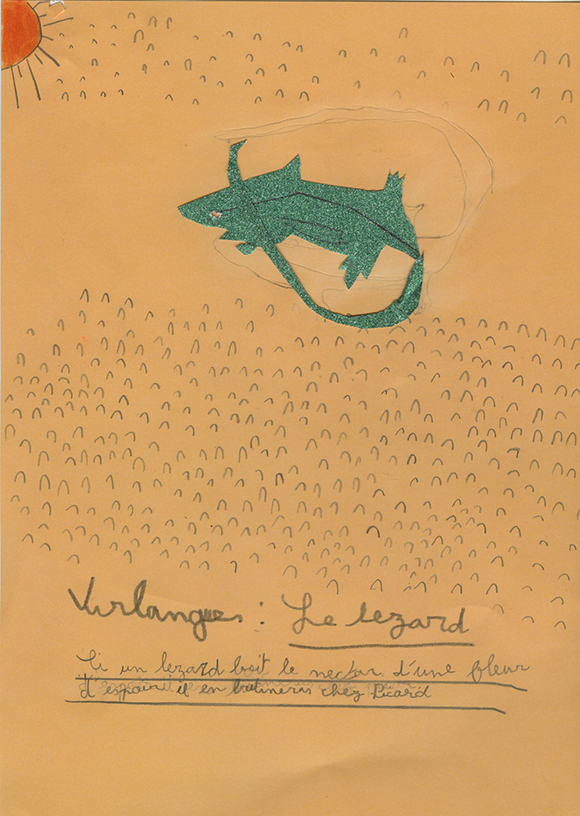 Virlangues : Le lezard
Si un lezard boit le nectar d'une fleur
d'espoir il en butineras chez Picard